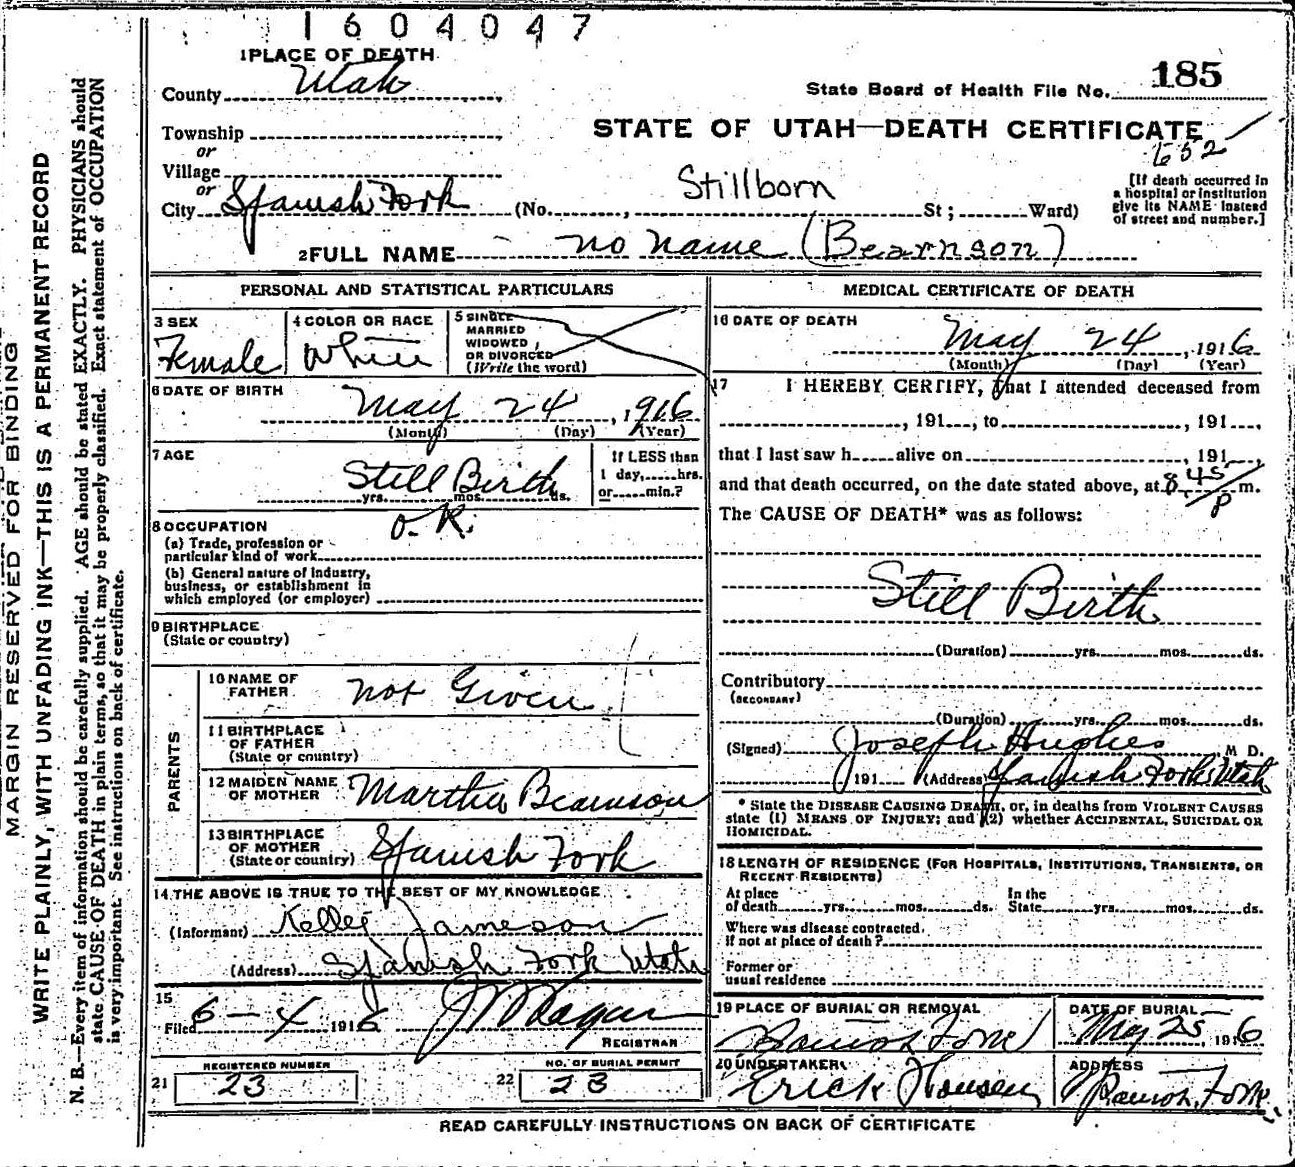 1604047
1 PLACE OF DEATH
County Utah
State Board of Health File No. 185
Township
STATE OF UTAH—DEATH CERTIFICATE
or
Village
or
City Spanish Fork (No. , Stillborn St ; Ward)
[If death occurred in
a hospital or institution
give its NAME instead
of street and number.]
2 FULL NAME no name (Bearnson)
PERSONAL AND STATISTICAL PARTICULARS
3 SEX
Female
4 COLOR OR RACE
White
5 SINGLE
MARRIED
WIDOWED
OR DIVORCED
(Write the word)
6 DATE OF BIRTH
May 24, 1916
(Month) (Day) (Year)
7 AGE
Still Birth
yrs. mos. ds.
If LESS than
1 day, hrs.
or min.?
8 OCCUPATION
O.K.
(a) Trade, profession or
particular kind of work
(b) General nature of industry,
business, or establishment in
which employed (or employer)
9 BIRTHPLACE
(State or country)
PARENTS
10 NAME OF
FATHER
not Given
11 BIRTHPLACE
OF FATHER
(State or country)
12 MAIDEN NAME
OF MOTHER
Martha Bearnson
13 BIRTHPLACE
OF MOTHER
(State or country)
Spanish Fork
14 THE ABOVE IS TRUE TO THE BEST OF MY KNOWLEDGE
(Informant) Jameson
(Address) Spanish Fork Utah
15
Filed 6-4 1916
REGISTRAR
REGISTERED NUMBER
21 23
NO. OF BURIAL PERMIT
22 23
MEDICAL CERTIFICATE OF DEATH
16 DATE OF DEATH
May 24, 1916
(Month) (Day) (Year)
17 I HEREBY CERTIFY, That I attended deceased from
, 191 , to , 191 ,
that I last saw h alive on , 191 ,
and that death occurred, on the date stated above, at 8 45 P m.
The CAUSE OF DEATH* was as follows:
Still Birth
(Duration) yrs. mos. ds.
Contributory
(SECONDARY)
(Duration) yrs. mos. ds.
(Signed) Joseph Hughes M D.
191 (Address) Spanish Fork Utah
* State the DISEASE CAUSING DEATH, or, in deaths from VIOLENT CAUSES
state (1) MEANS OF INJURY; and (2) whether ACCIDENTAL, SUICIDAL OR
HOMICIDAL.
18 LENGTH OF RESIDENCE (FOR HOSPITALS, INSTITUTIONS, TRANSIENTS, OR
RECENT RESIDENTS)
At place
of death yrs. mos. ds.
In the
State yrs. mos. ds.
Where was disease contracted,
if not at place of death?
Former or
usual residence
19 PLACE OF BURIAL OR REMOVAL
Spanish Fork
DATE OF BURIAL
May 25, 1916
20 UNDERTAKER
Erick Hansen
ADDRESS
Spanish Fork
READ CAREFULLY INSTRUCTIONS ON BACK OF CERTIFICATE
MARGIN RESERVED FOR BINDING
WRITE PLAINLY, WITH UNFADING INK—THIS IS A PERMANENT RECORD
N. B.—Every item of information should be carefully supplied. AGE should be stated EXACTLY. PHYSICIANS should
state CAUSE OF DEATH in plain terms, so that it may be properly classified. Exact statement of OCCUPATION
is very important. See instructions on back of certificate.